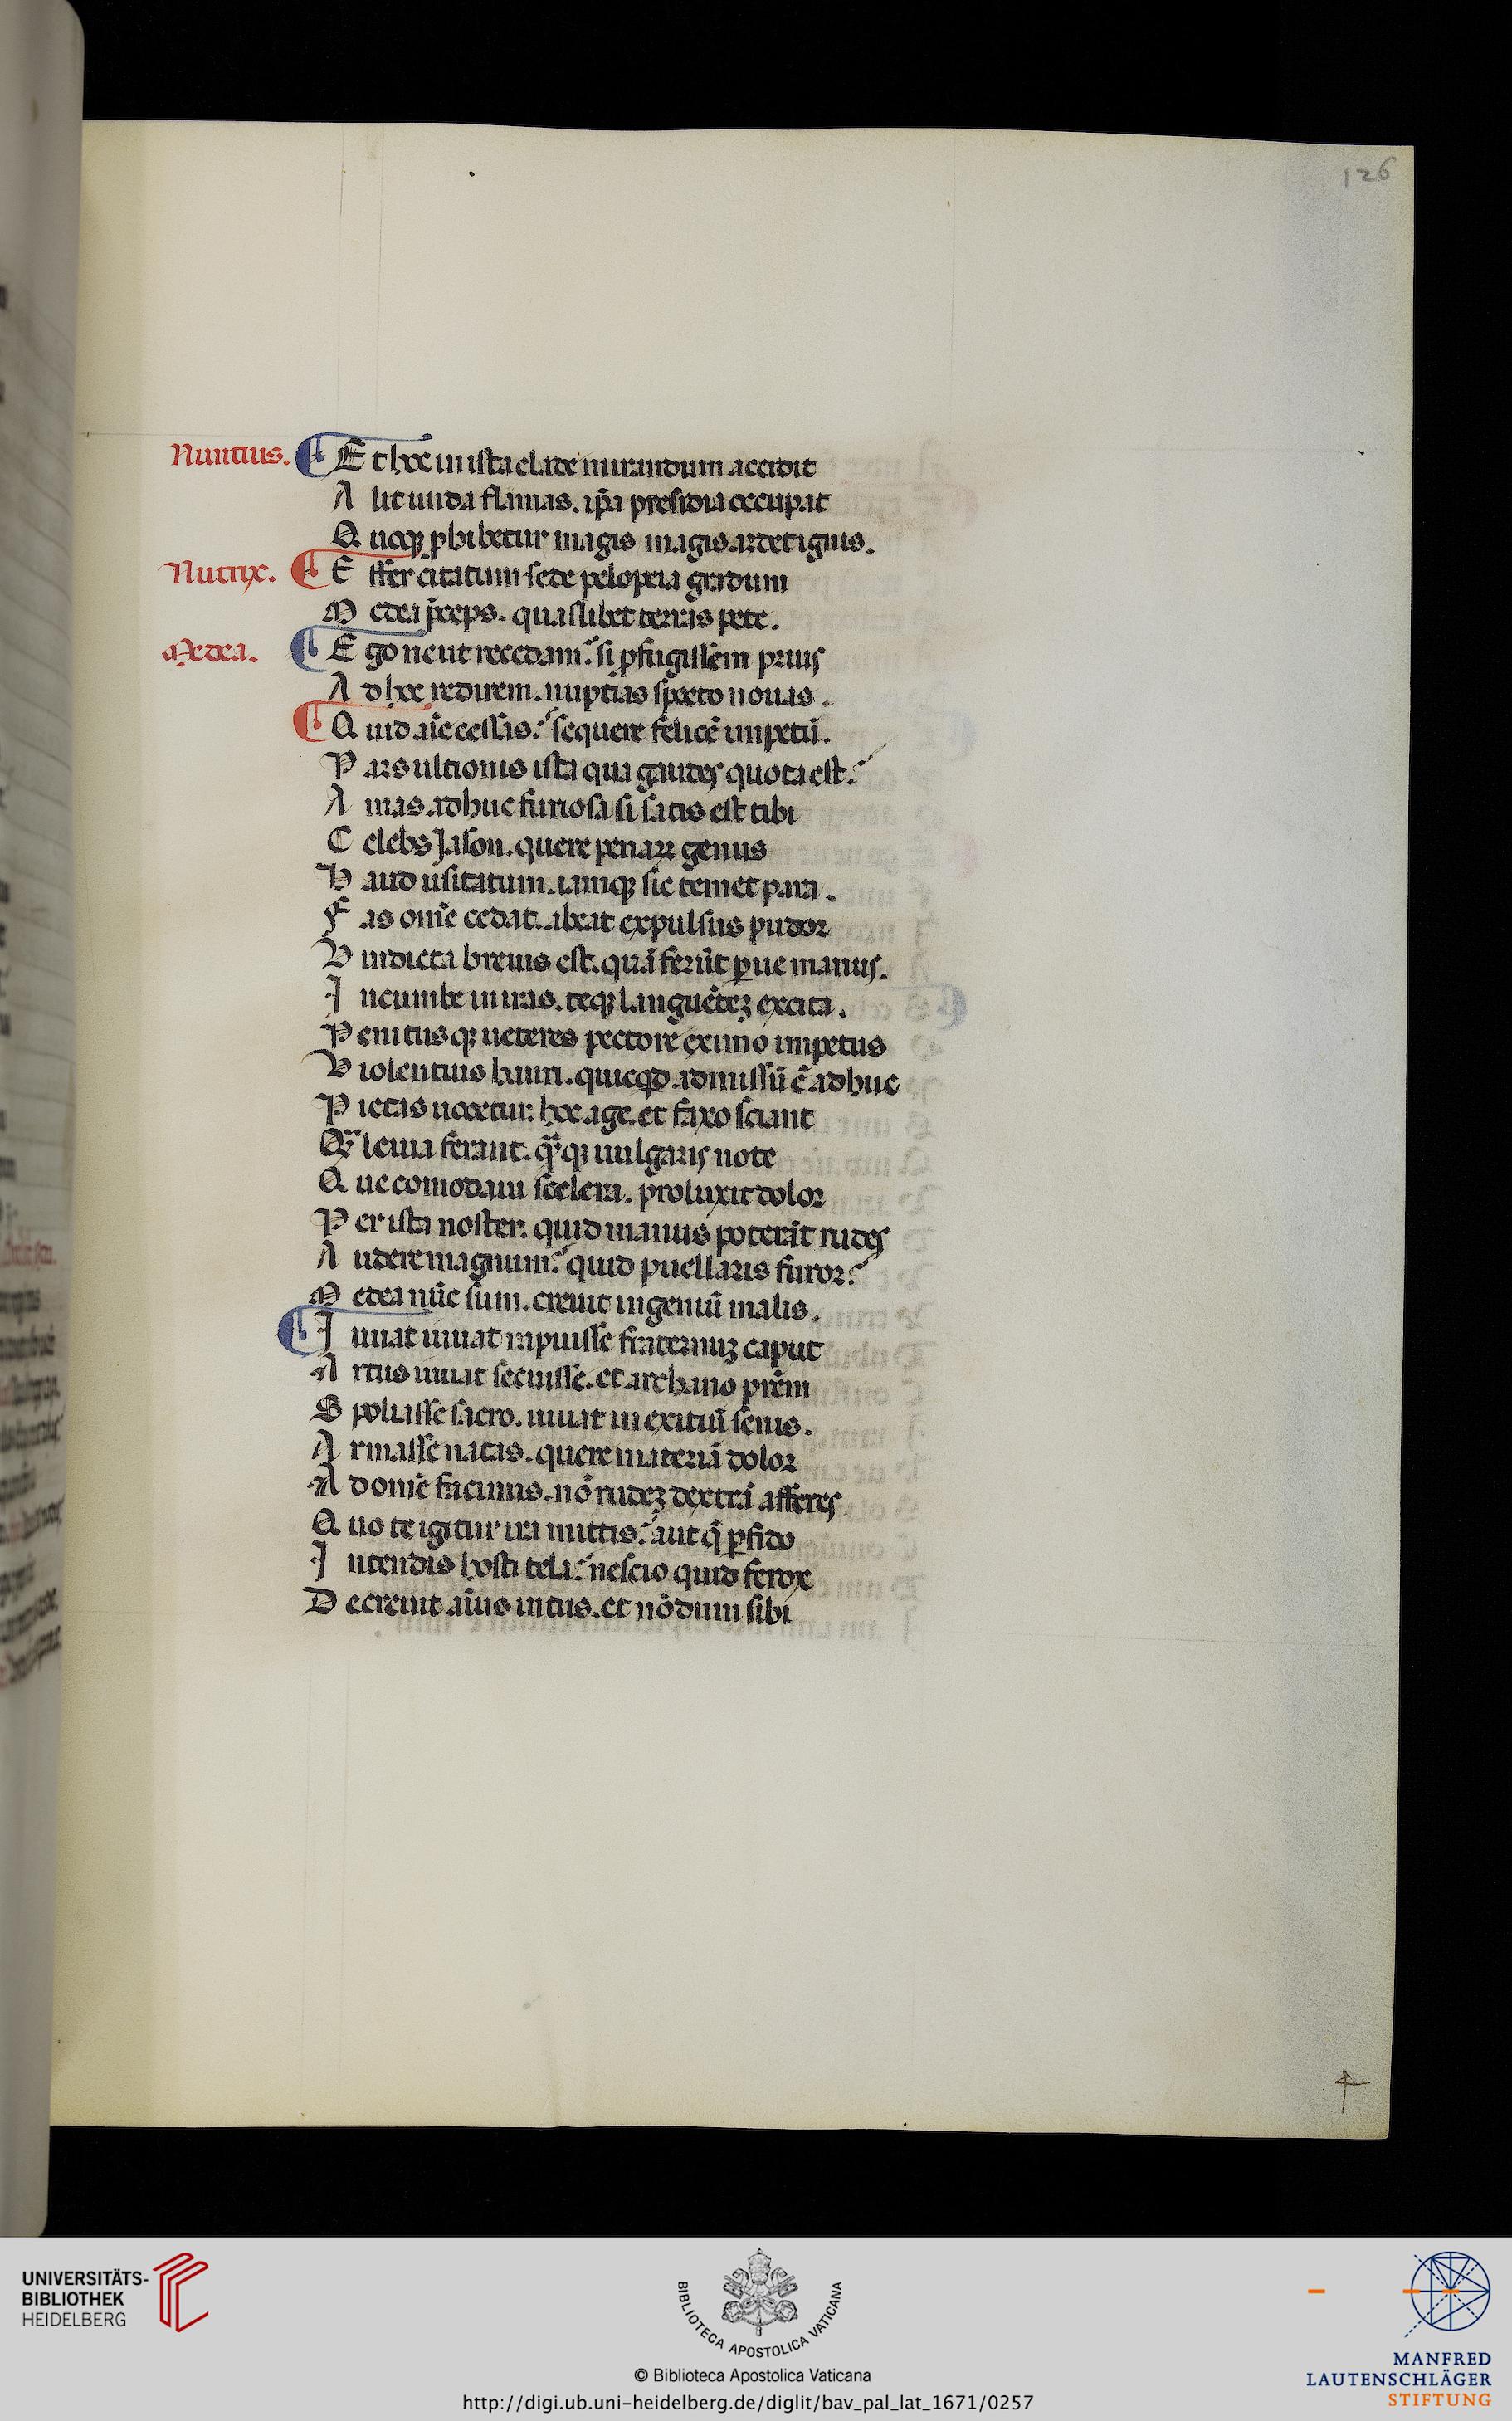 126
Nuntius. Et hoc in ista clade mirandum accidit
Alit unda flāmas. ip̄a presidia occupat
Quoqꝫ ꝓhibetur magis magis ardet ignis.
Nutrix. Effer citatum sede pelopeia gradum
Medea p̄ceps. quaslibet terras pete.
Medea. Egone ut recedam? si ꝓfugissem prius
Ad hoc redirem. nuptias specto nouas.
Quid aīe cessas? sequere felicē impetū.
Pars ultionis ista qua gaudes quota est?
Amas adhuc furiosa si satis est tibi
Celebs Jason. quere penarꝝ genus
Haud usitatum. iamqꝫ sic temet para.
Fas omē cedat. abeat expulsus pudor
Vindicta breuis est. quā ferūt pure manus.
Incumbe in iras. teqꝫ languētēꝫ excita.
Penitusqꝫ ueteres pectore ex imo impetus
Violentius hauri. quicqd admissū ē adhuc
Pietas uocetur. hoc age. et faxo sciant
Qͣ leuia ferant. qͣqꝫ uulgaris note
Que comodaui scelera. proluxit dolor
Per ista noster. quid manus poterāt rudes
Audere magnum? quid puellaris furor?
Medea nūc sum. creuit ingeniū malis.
Iuuat iuuat rapuisse fraternuꝫ caput
Artus iuuat secuisse. et archano pr̄em
Spoliasse sacro. iuuat in exitiū senis.
Armasse natas. quere materiā dolor
Ad omē facinus. nō rudeꝫ dextrā afferes
Quo te igitur ira mittis? aut q̄ ꝑfido
Intendis hosti tela? nescio quid ferox
Decreuit aīus intus. et nōdum sibi
UNIVERSITÄTS-
BIBLIOTHEK
HEIDELBERG
BIBLIOTECA APOSTOLICA VATICANA
© Biblioteca Apostolica Vaticana
http://digi.ub.uni-heidelberg.de/diglit/bav_pal_lat_1671/0257
MANFRED
LAUTENSCHLÄGER
STIFTUNG